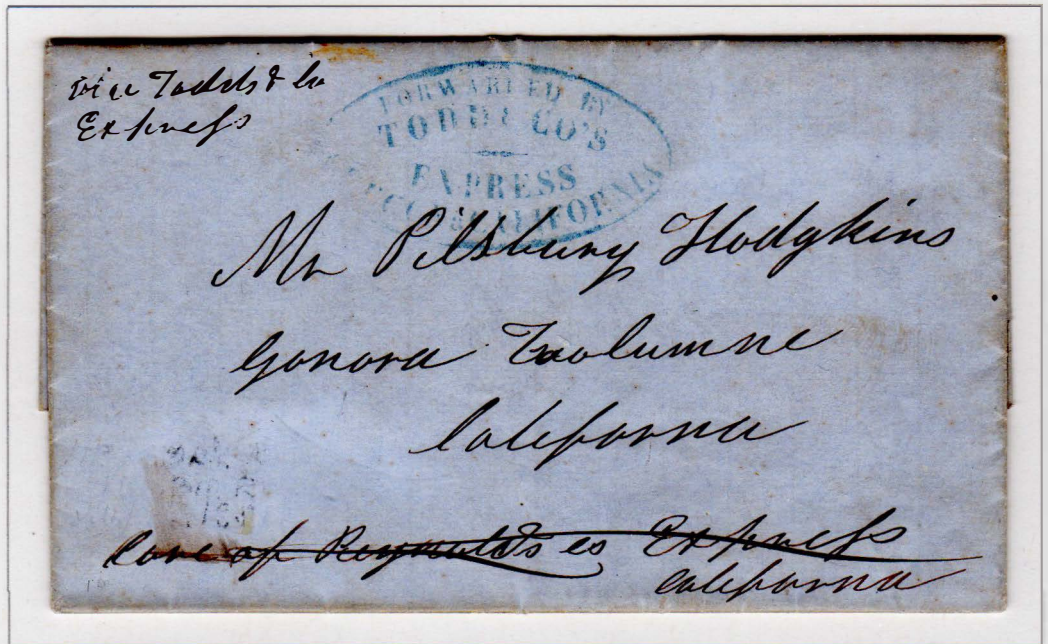 via Todds & Co
Express
FORWARDED BY
TODD & CO'S
EXPRESS
CALIFORNIA
Mr Pilsbury Hodgkins
Sonora Tuolumne
California
Care of Reynolds Co Express
California